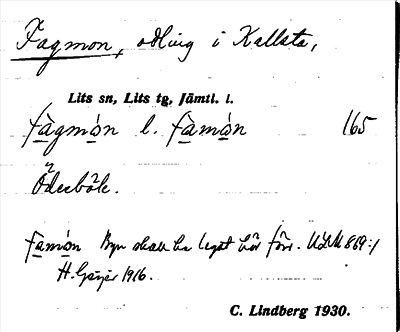 Fagmon, odling i Kallsta,
Lits sn, Lits tg, Jämtl. l.
fàgmón l. fàmón 165
Ödesböle.
fàmón Byn skall ha legat här förr.
H. Geijer 1916.
C. Lindberg 1930.